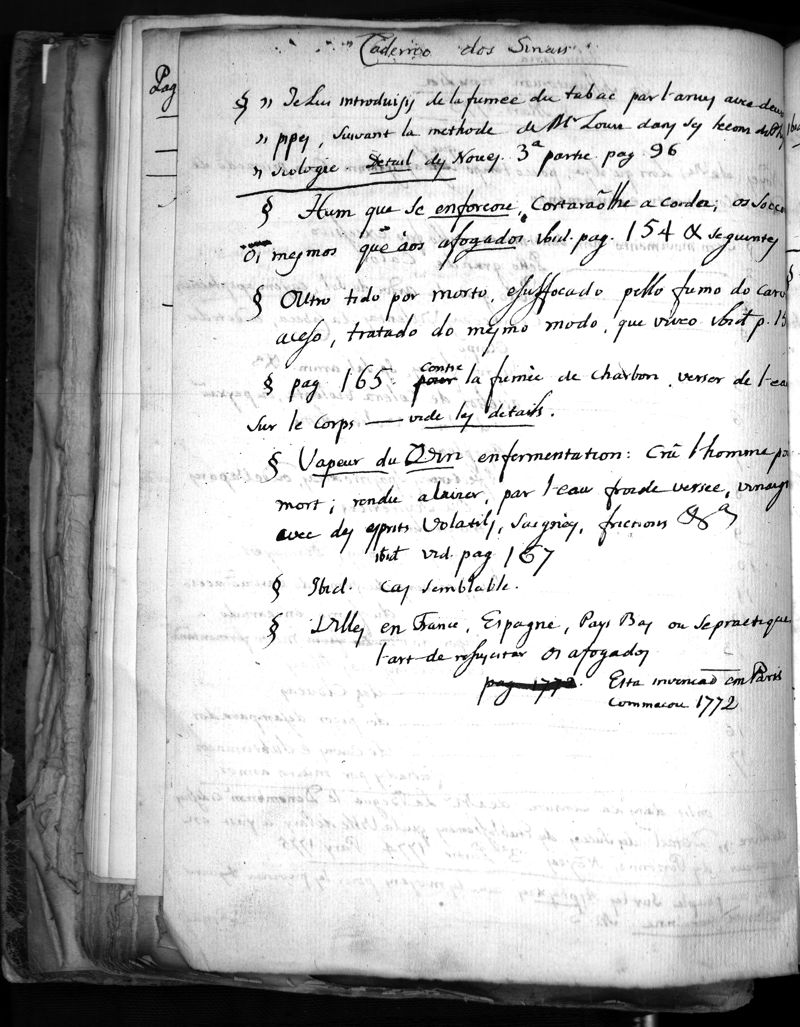 Caderno dos Sinais
Pag
§ " Je lui introduisis de la fumée du tabac par l'anus avec deux
" pipes, suivant la methode de Mr Louis dans ses lecons de Phy
" siologie Detail des Noyes. 3ª partie pag. 96
§ Hum que se enforcou, Cortarão lhe a corda; os socco
os mesmos que aos afogados. ibid. pag. 154 & seguintes
§ Outro tido por morto, e suffocado pello fumo do carv
aceso, tratado do mesmo modo, que viveo ibid p. 15
§ pag 165. contre pour la fumée de charbon verser de l'ea
sur le corps — vide les details.
§ Vapeur du Vin enfermentation: Crû l'homme po
mort; rendu a la vie, par l'eau froide versée, vinaigr
avec des esprits Volatils, Saignées, frictions &ª
ibid vid. pag 167
§ Ibid. Cas semblable.
§ Villes en France, Espagne, Pays Bas ou se practique
l'art de resuscitar os afogados
pag 1772. Esta invencaõ em Paris
Commecou 1772